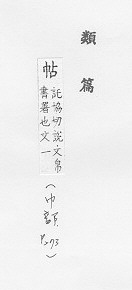 類篇
帖
託協切說文帛
書署也文一